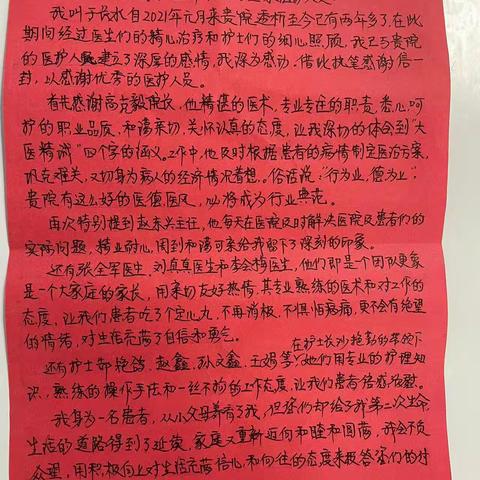 我叫于长水自2021年元月来贵院透析至今已有两年多了,在此
期间经过医生们的精心治疗和护士们的细心照顾,我已与贵院
的医护人员建立了深厚的感情,我深为感动,借此执笔感谢信一
封,以感谢优秀的医护人员。
首先感谢高克毅院长,他精湛的医术,专业专注的职责,悉心呵
护的职业品质,和蔼亲切,关怀认真的态度,让我深切的体会到"大
医精诚"四个字的涵义。工作中,他及时根据患者的病情制定医治方案,
巩克难关,又切身为病人的经济情况着想。俗话说:"行为业,德为上"
贵院有这么好的医德医风,必将成为行业典范。
再次特别提到赵东兴主任,他每天在医院及时解决医院及患者们的
实际问题,精业耐心,周到和蔼可亲给我留下了深刻的印象。
还有张全军医生,刘真真医生和李会梅医生,他们即是个团队更象
是一个大家庭的家长,用亲切友好热情,其专业熟练的医术和对工作的
态度,让我们患者吃了个定心丸,不再消极,不惧怕病痛,更不会有绝望
的情绪,对生活充满了自信和勇气。
在护士长的带领下
还有护士郜艳鸽,赵鑫,孙文鑫,王娟等,她们用专业的护理知
识,熟练的操作手法和一丝不苟的工作态度,让我们患者倍感温慰。
我身为一名患者,从小父母养育了我,但您们却给了我第二次生命,
生活的道路得到了延续,家庭又重新迈向和睦和圆满,我会不负
众望,用积极向上对生活充满信心和向往的态度来报答您们的付